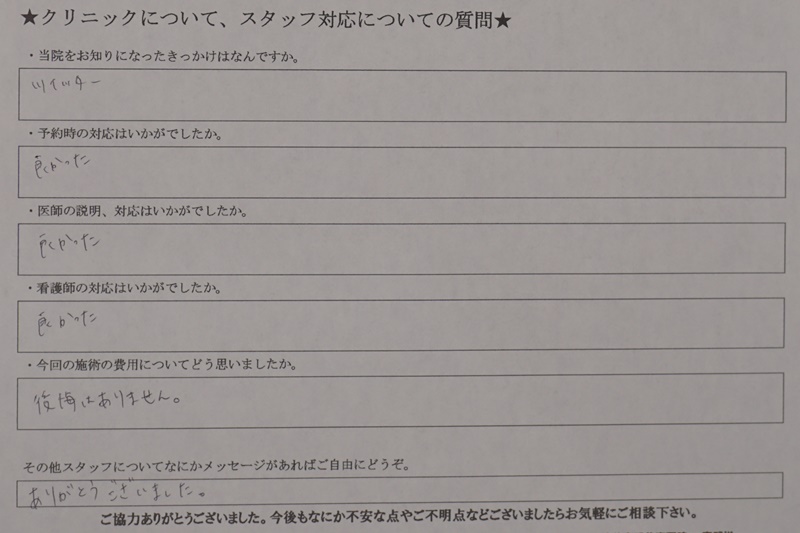 ★クリニックについて、スタッフ対応についての質問★
・当院をお知りになったきっかけはなんですか。
ツイッター
・予約時の対応はいかがでしたか。
良かった
・医師の説明、対応はいかがでしたか。
良かった
・看護師の対応はいかがでしたか。
良かった
・今回の施術の費用についてどう思いましたか。
後悔はありません。
その他スタッフについてなにかメッセージがあればご自由にどうぞ。
ありがとうございました。
ご協力ありがとうございました。今後もなにか不安な点やご不明点などございましたらお気軽にご相談下さい。